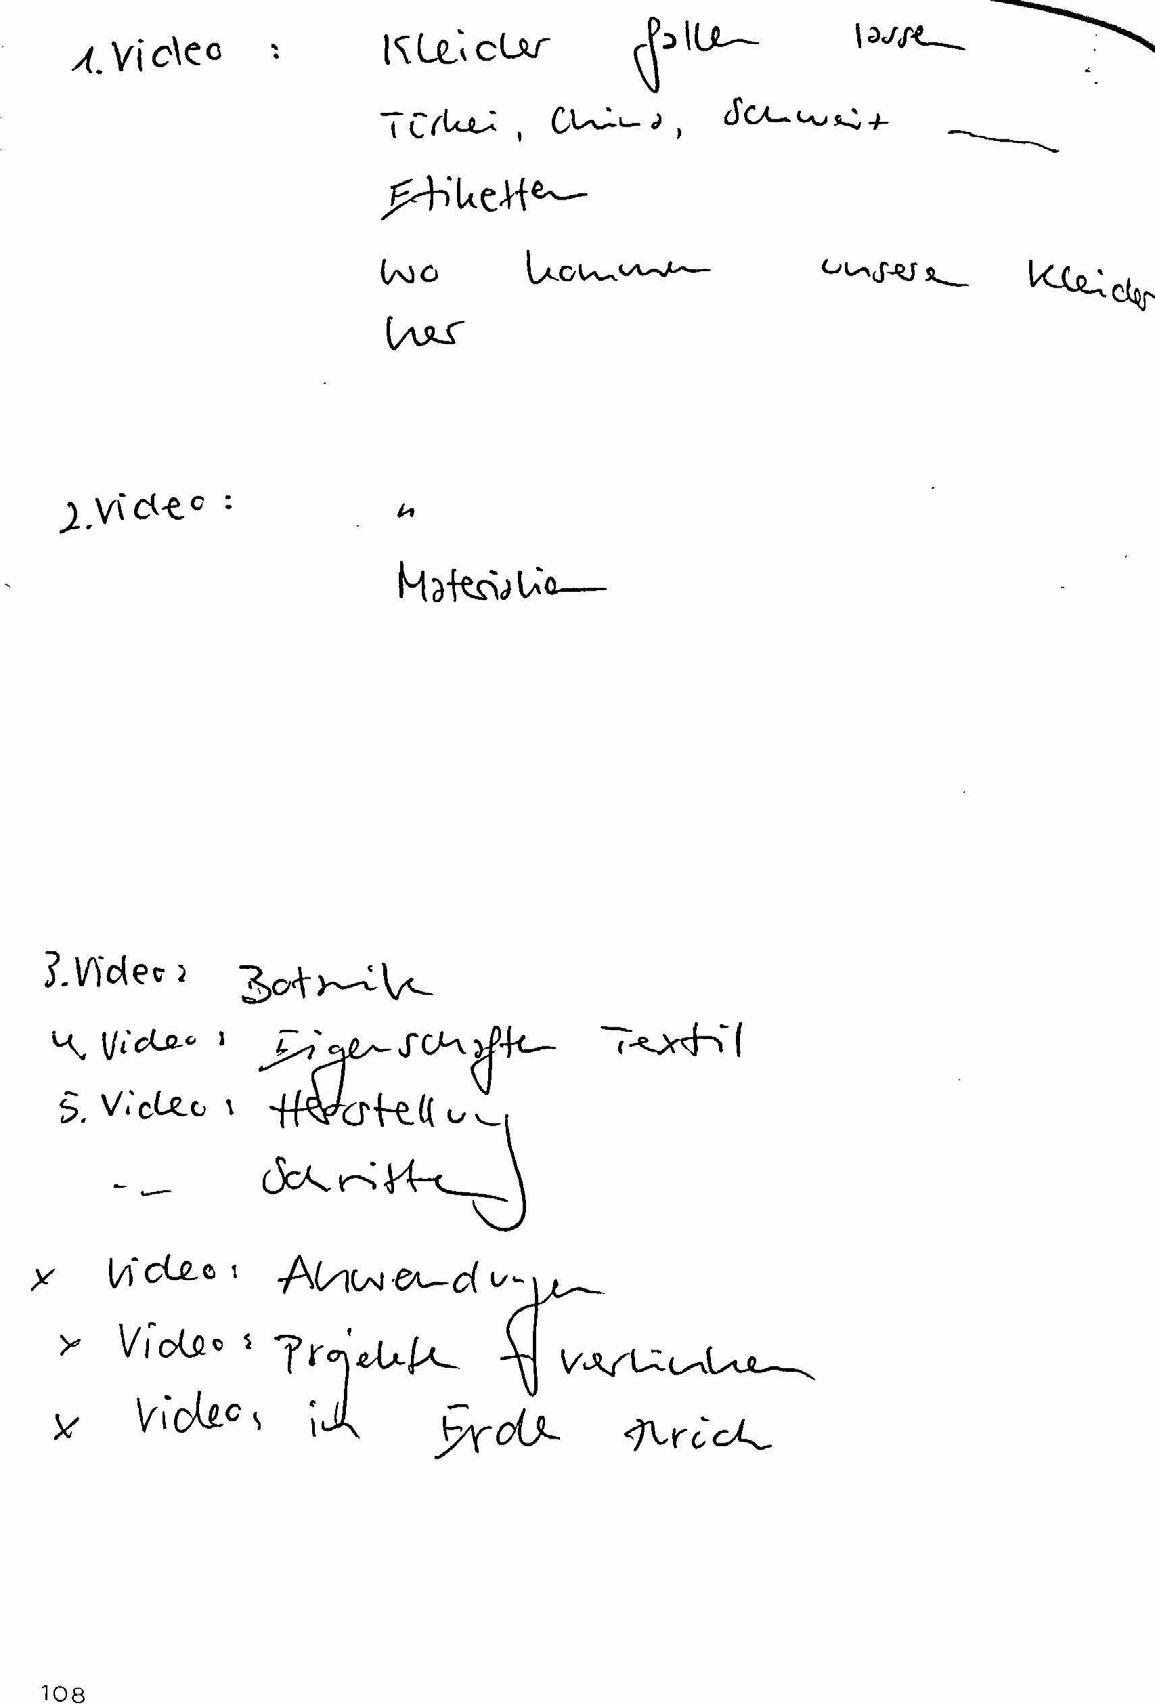 1. Video : Kleider fallen lassen
Türkei, China, Schweiz
Etiketten
wo kommen unsere Kleider
her
2. Video : "
Materialien
3. Video: Botanik
4. Video: Eigenschaften Textil
5. Video: Herstellung
-- Schritte
x Video: Anwendungen
x Video: Projekte verlinken
x Video: ich Erde
108